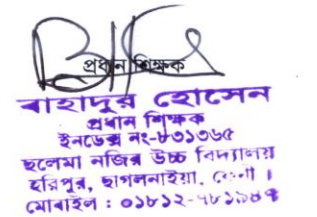 প্রধান শিক্ষক
বাহাদুর হোসেন
প্রধান শিক্ষক
ইনডেক্স নং-৮৩১৩৬৫
ছলেমা নজির উচ্চ বিদ্যালয়
হরিপুর, ছাগলনাইয়া, ফেনী।
মোবাইল : ০১৮১২-৭৮১৯৪৭